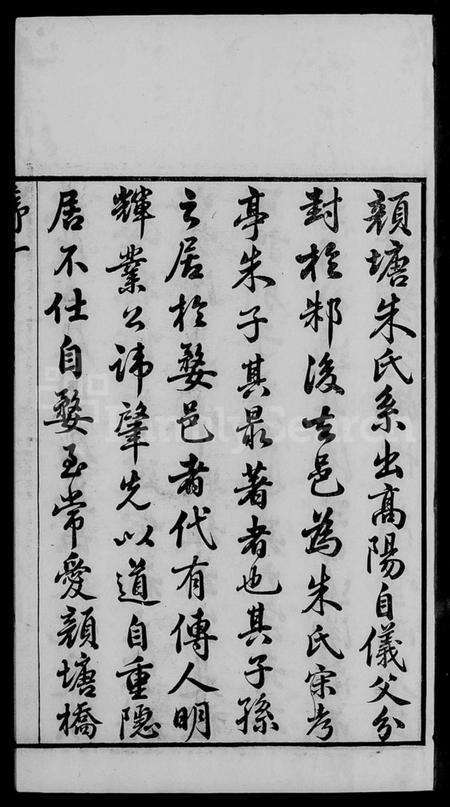 頴塘朱氏系出高陽自儀父分
封於邾後去邑為朱氏宋考
亭朱子其最著者也其子孫
之居於婺邑者代有傳人明
輝業公諱肇先以道自重隱
居不仕自婺至常愛頴塘橋
序一
FamilySearch